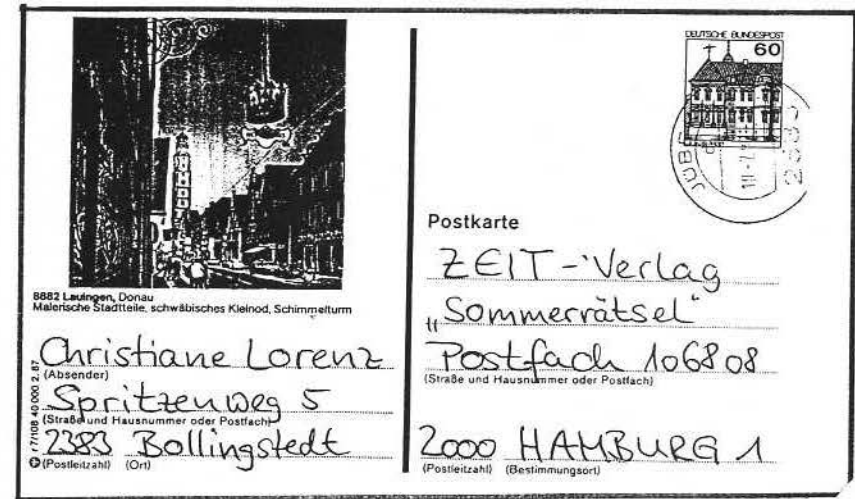 DEUTSCHE BUNDESPOST
60
8882 Lauingen, Donau
Malerische Stadtteile, schwäbisches Kleinod, Schimmelturm
Christiane Lorenz
(Absender)
Spritzenweg 5
(Straße und Hausnummer oder Postfach)
2383 Bollingstedt
(Postleitzahl) (Ort)
r 7/108 40 000 2. 87
Postkarte
ZEIT-Verlag
„Sommerrätsel“
Postfach 106808
(Straße und Hausnummer oder Postfach)
2000 HAMBURG 1
(Postleitzahl) (Bestimmungsort)